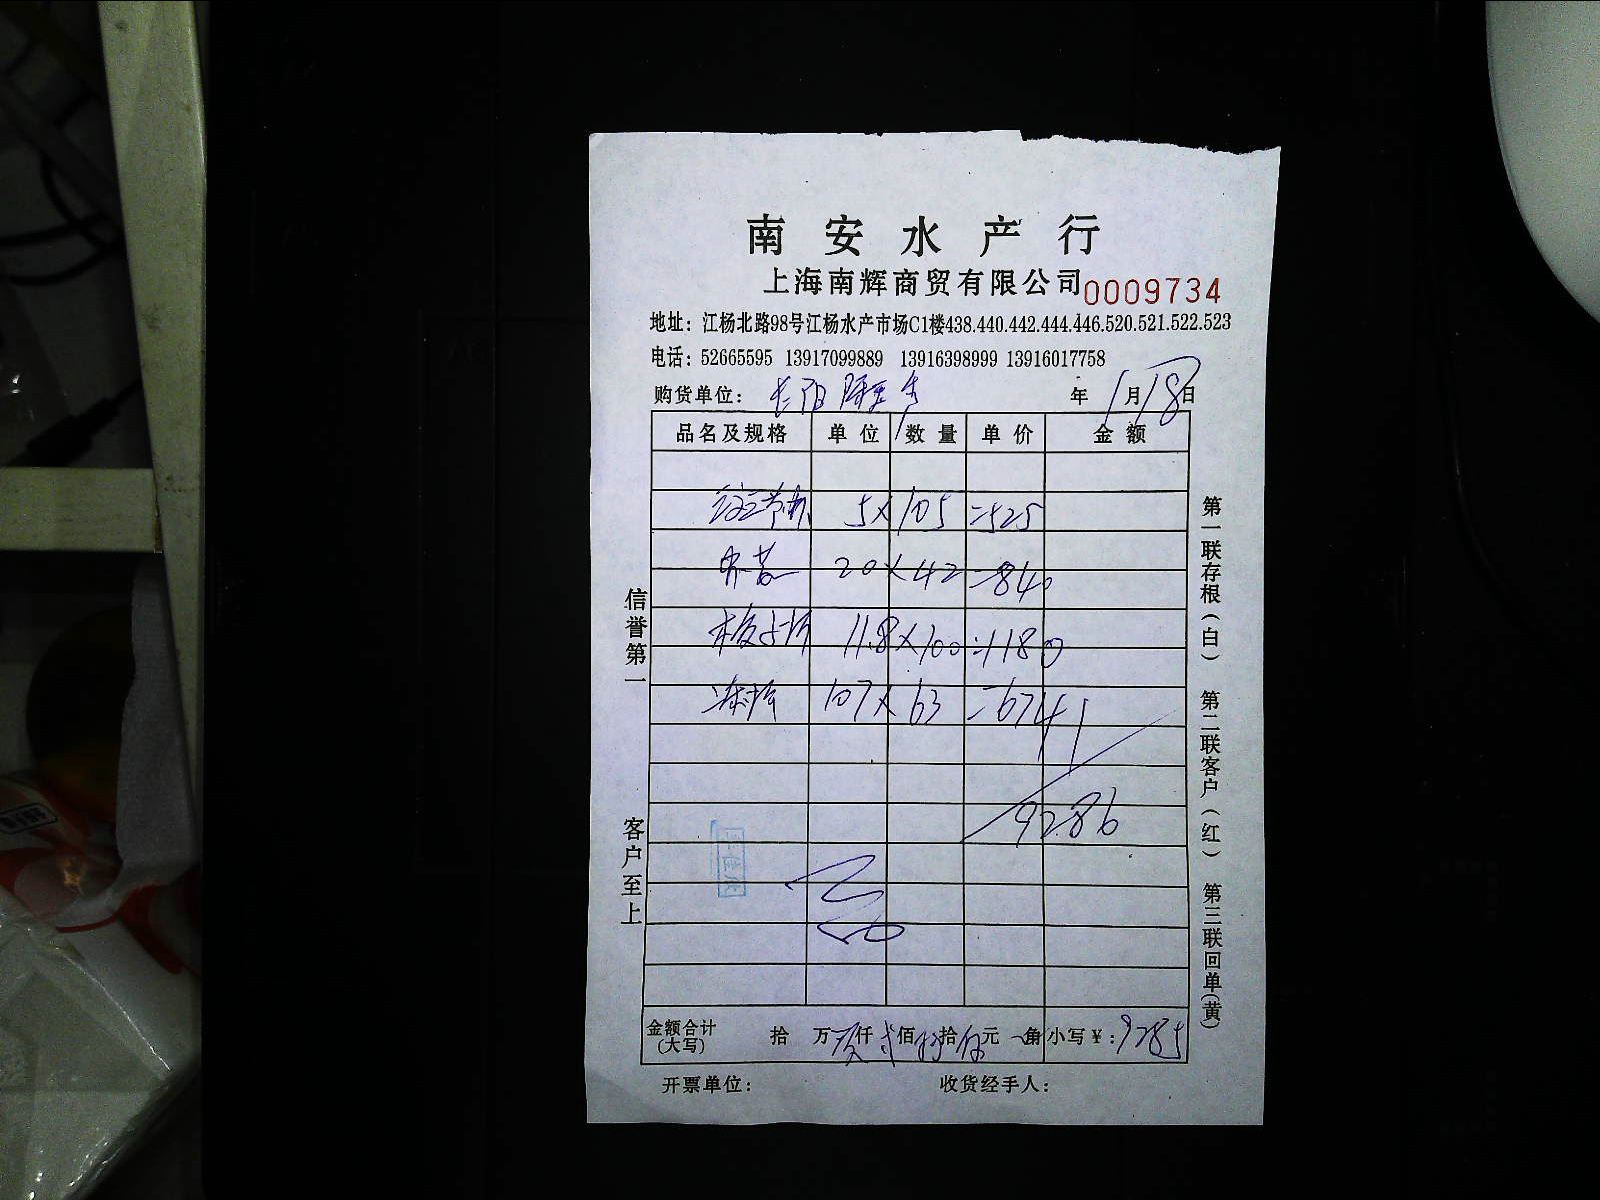 南安水产行
上海南辉商贸有限公司 0009734
地址：江杨北路98号江杨水产市场C1楼438.440.442.444.446.520.521.522.523
电话：52665595 13917099889 13916398999 13916017758
购货单位： 年 1月18日
品名及规格 单位 数量 单价 金额
5×105=525
20×42=840
11.8×100=1180
107×63=6741
9286
金额合计(大写) 拾 万 仟 贰佰 拾 元 角 小写￥：9285
开票单位： 收货经手人：
信誉第一 客户至上
第一联存根（白） 第二联客户（红） 第三联回单(黄)